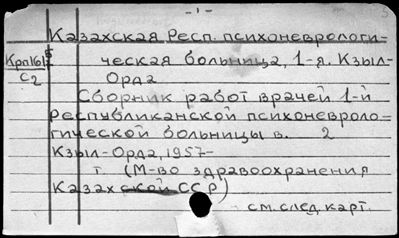 - 1 -
Казахская Респ. психоневрологи-
Крп161
С2
ческая больница, 1-я. Кзыл-
Орда
Сборник работ врачей 1-й
республиканской психоневроло=
гической больницы в. 2
Кзыл-Орда, 1957-
т. (М-во здравоохранения
Казахской ССР)
см. след. карт.